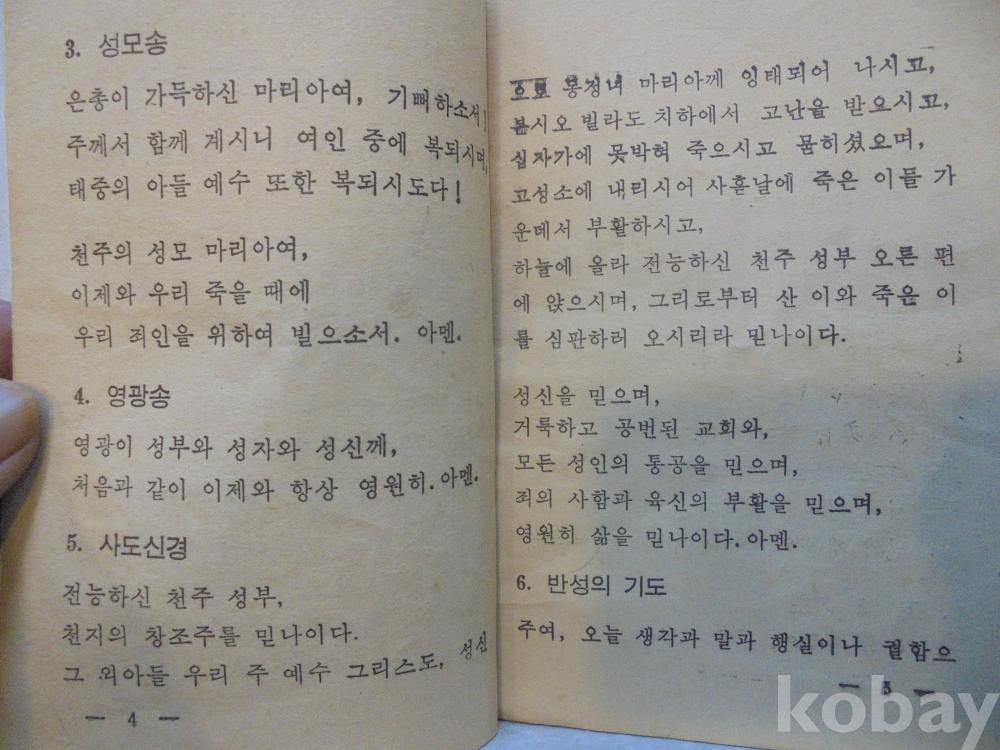 3. 성모송
은총이 가득하신 마리아여, 기뻐하소서!
주께서 함께 계시니 여인 중에 복되시며,
태중의 아들 예수 또한 복되시도다!
천주의 성모 마리아여,
이제와 우리 죽을 때에
우리 죄인을 위하여 빌으소서. 아멘.
4. 영광송
영광이 성부와 성자와 성신께,
처음과 같이 이제와 항상 영원히. 아멘.
5. 사도신경
전능하신 천주 성부,
천지의 창조주를 믿나이다.
그 외아들 우리 주 예수 그리스도, 성신
— 4 —
으로 동정녀 마리아께 잉태되어 나시고,
본시오 빌라도 치하에서 고난을 받으시고,
십자가에 못박혀 죽으시고 묻히셨으며,
고성소에 내리시어 사흗날에 죽은 이들 가
운데서 부활하시고,
하늘에 올라 전능하신 천주 성부 오른 편
에 앉으시며, 그리로부터 산 이와 죽은 이
를 심판하러 오시리라 믿나이다.
성신을 믿으며,
거룩하고 공번된 교회와,
모든 성인의 통공을 믿으며,
죄의 사함과 육신의 부활을 믿으며,
영원히 삶을 믿나이다. 아멘.
6. 반성의 기도
주여, 오늘 생각과 말과 행실이나 궐함으
— 5 —
kobay